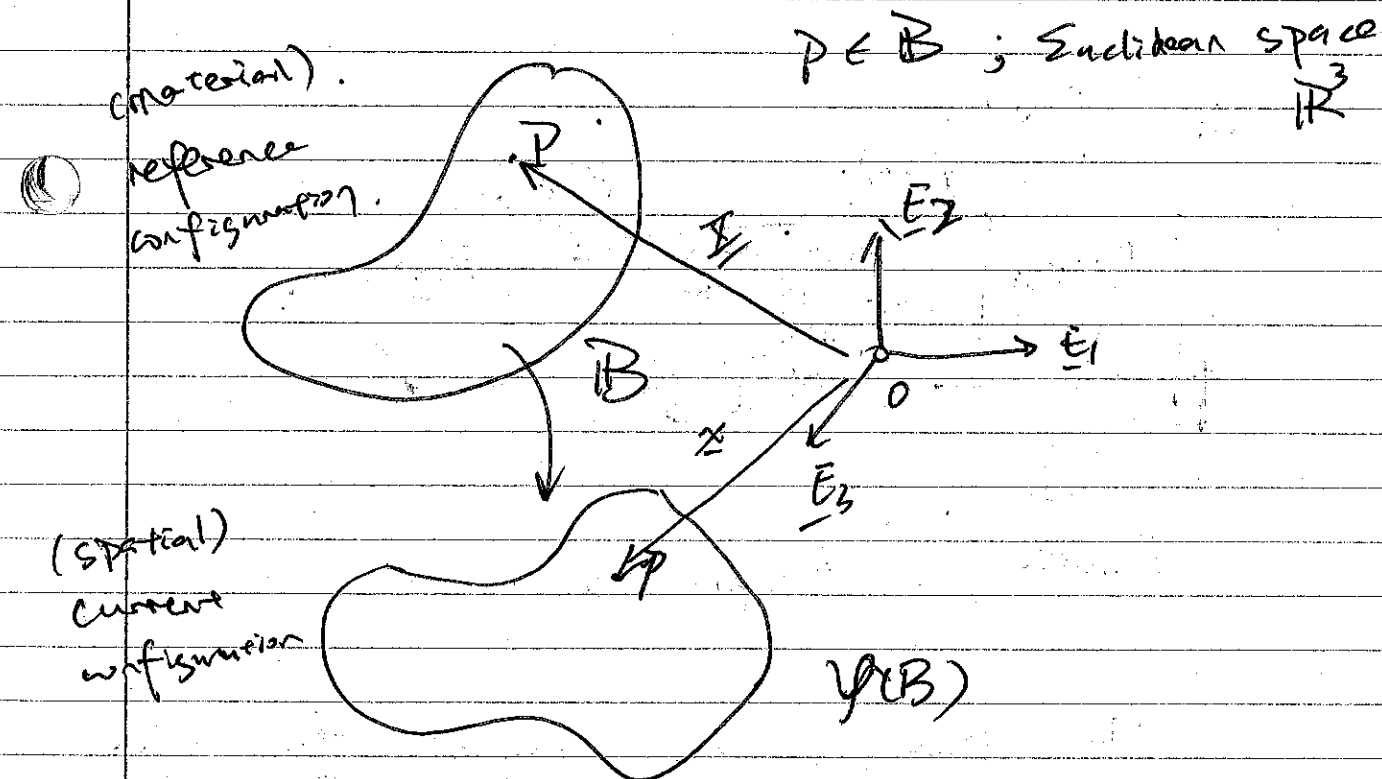 P ∈ 𝔹 ; Euclidean space
ℝ³
(material).
reference
configuration.
P
X
E2
E1
O
𝔹
x
E3
(spatial)
current
configuration
p
φ(B)